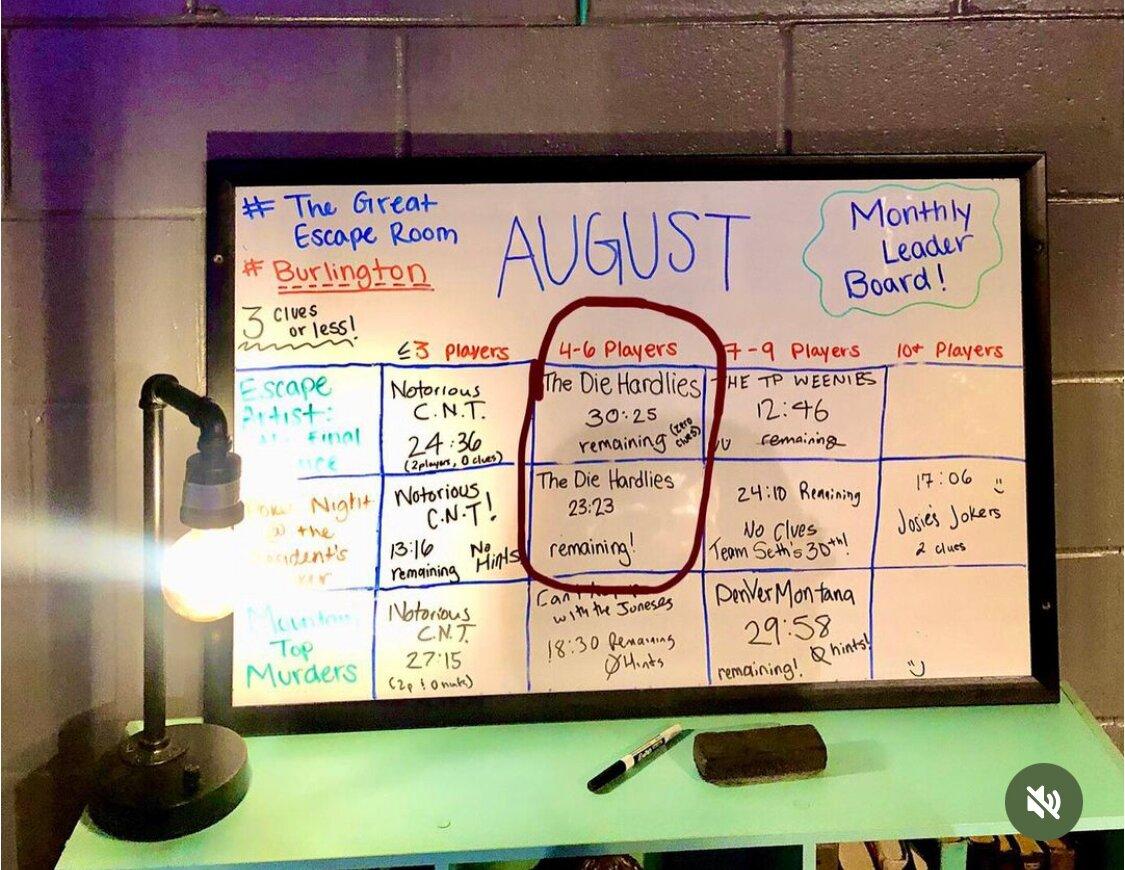 # The Great
Escape Room
# Burlington
AUGUST
Monthly
Leader
Board!
3 clues
or less!
≤3 players
4-6 Players
7-9 Players
10+ Players
Escape
Artist:
Final
Notorious
C.N.T.
24:36
(2players, 0 clues)
The Die Hardlies
30:25
remaining (zero
clues)
THE TP WEENIES
12:46
remaining
Night
@ the
Notorious
C.N.T!
13:16
remaining
No
Hints
The Die Hardlies
23:23
remaining!
24:10 Remaining
No Clues
Team Seth's 30th!
17:06
Josie's Jokers
2 clues
Mountain
Top
Murders
Notorious
C.N.T.
27:15
with the Joneses
18:30 Remaining
Ø Hints
DenVerMontana
29:58
Ø hints!
remaining!